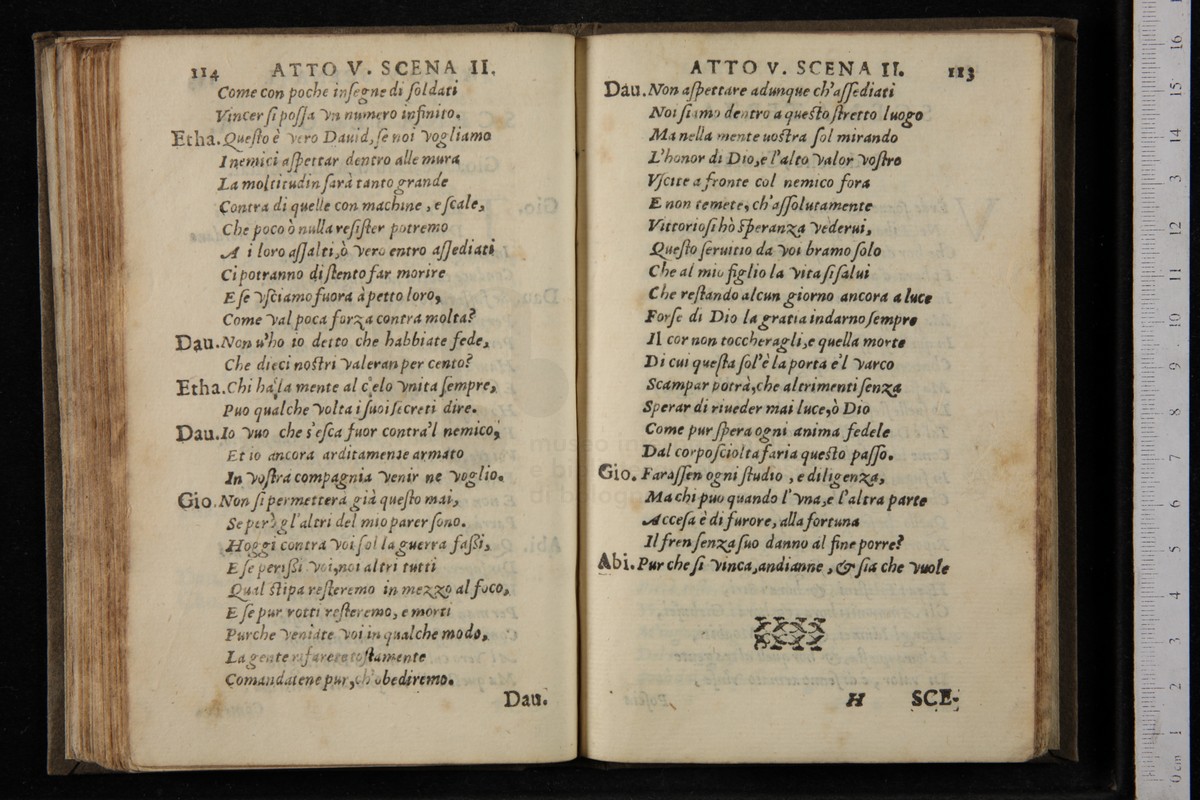 114 ATTO V. SCENA II.
Come con poche inſegne di ſoldati
Vincer ſi poſſa vn numero infinito.
Etha. Queſto è vero Dauid, ſe noi vogliamo
I nemici aſpettar dentro alle mura
La moltitudin ſarà tanto grande
Contra di quelle con machine, e ſcale,
Che poco ò nulla reſiſter potremo
A i loro aſſalti, ò vero entro aſſediati
Ci potranno di ſtento far morire
E ſe vſciamo fuora à petto loro,
Come val poca forza contra molta?
Dau. Non u'ho io detto che habbiate fede,
Che dieci noſtri valeran per cento?
Etha. Chi ha la mente al cielo vnita ſempre,
Puo qualche volta i ſuoi ſecreti dire.
Dau. Io vuo che s'eſca fuor contra'l nemico,
Et io ancora arditamente armato
In voſtra compagnia venir ne voglio.
Gio. Non ſi permetterà già queſto mai,
Se però gl'altri del mio parer ſono.
Hoggi contra voi ſol la guerra faſſi,
E ſe periſſi voi, noi altri tutti
Qual ſtipa reſteremo in mezzo al foco,
E ſe pur rotti reſteremo, e morti
Purche veniate voi in qualche modo,
La gente rifarete toſtamente
Comandatene pur, ch'obediremo.
Dau.
ATTO V. SCENA II. 113
Dau. Non aſpettare adunque ch'aſſediati
Noi ſiamo dentro a queſto ſtretto luogo
Ma nella mente uoſtra ſol mirando
L'honor di Dio, e l'alto valor voſtro
Vſcite a fronte col nemico fora
E non temete, ch'aſſolutamente
Vittorioſi hò ſperanza vederui,
Queſto ſeruitio da voi bramo ſolo
Che al mio figlio la vita ſi ſalui
Che reſtando alcun giorno ancora a luce
Forſe di Dio la gratia indarno ſempre
Il cor non toccheragli, e quella morte
Di cui queſta ſol'è la porta e'l varco
Scampar potrà, che altrimenti ſenza
Sperar di riueder mai luce, ò Dio
Come pur ſpera ogni anima fedele
Dal corpo ſciolta faria queſto paſſo.
Gio. Faraſſen ogni ſtudio, e diligenza,
Ma chi puo quando l'vna, e l'altra parte
Acceſa è di furore, alla fortuna
Il fren ſenza ſuo danno al fine porre?
Abi. Pur che ſi vinca, andianne, & ſia che vuole
H SCE-